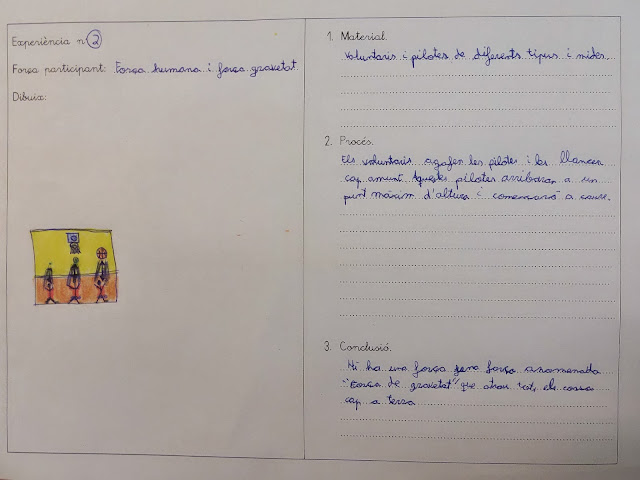 Experiència nº 2
Força participant: Força humana i força gravetat
Dibuix:
1. Material.
Voluntaris i pilotes de diferents tipus i mides.
2. Procés.
Els voluntaris agafen les pilotes i les llancen
cap amunt. Aquestes pilotes arribaran a un
punt màxim d'altura i començarà a caure.
3. Conclusió.
Hi ha una força anomenada
"Força de gravetat" que atrau els cossos
cap a terra